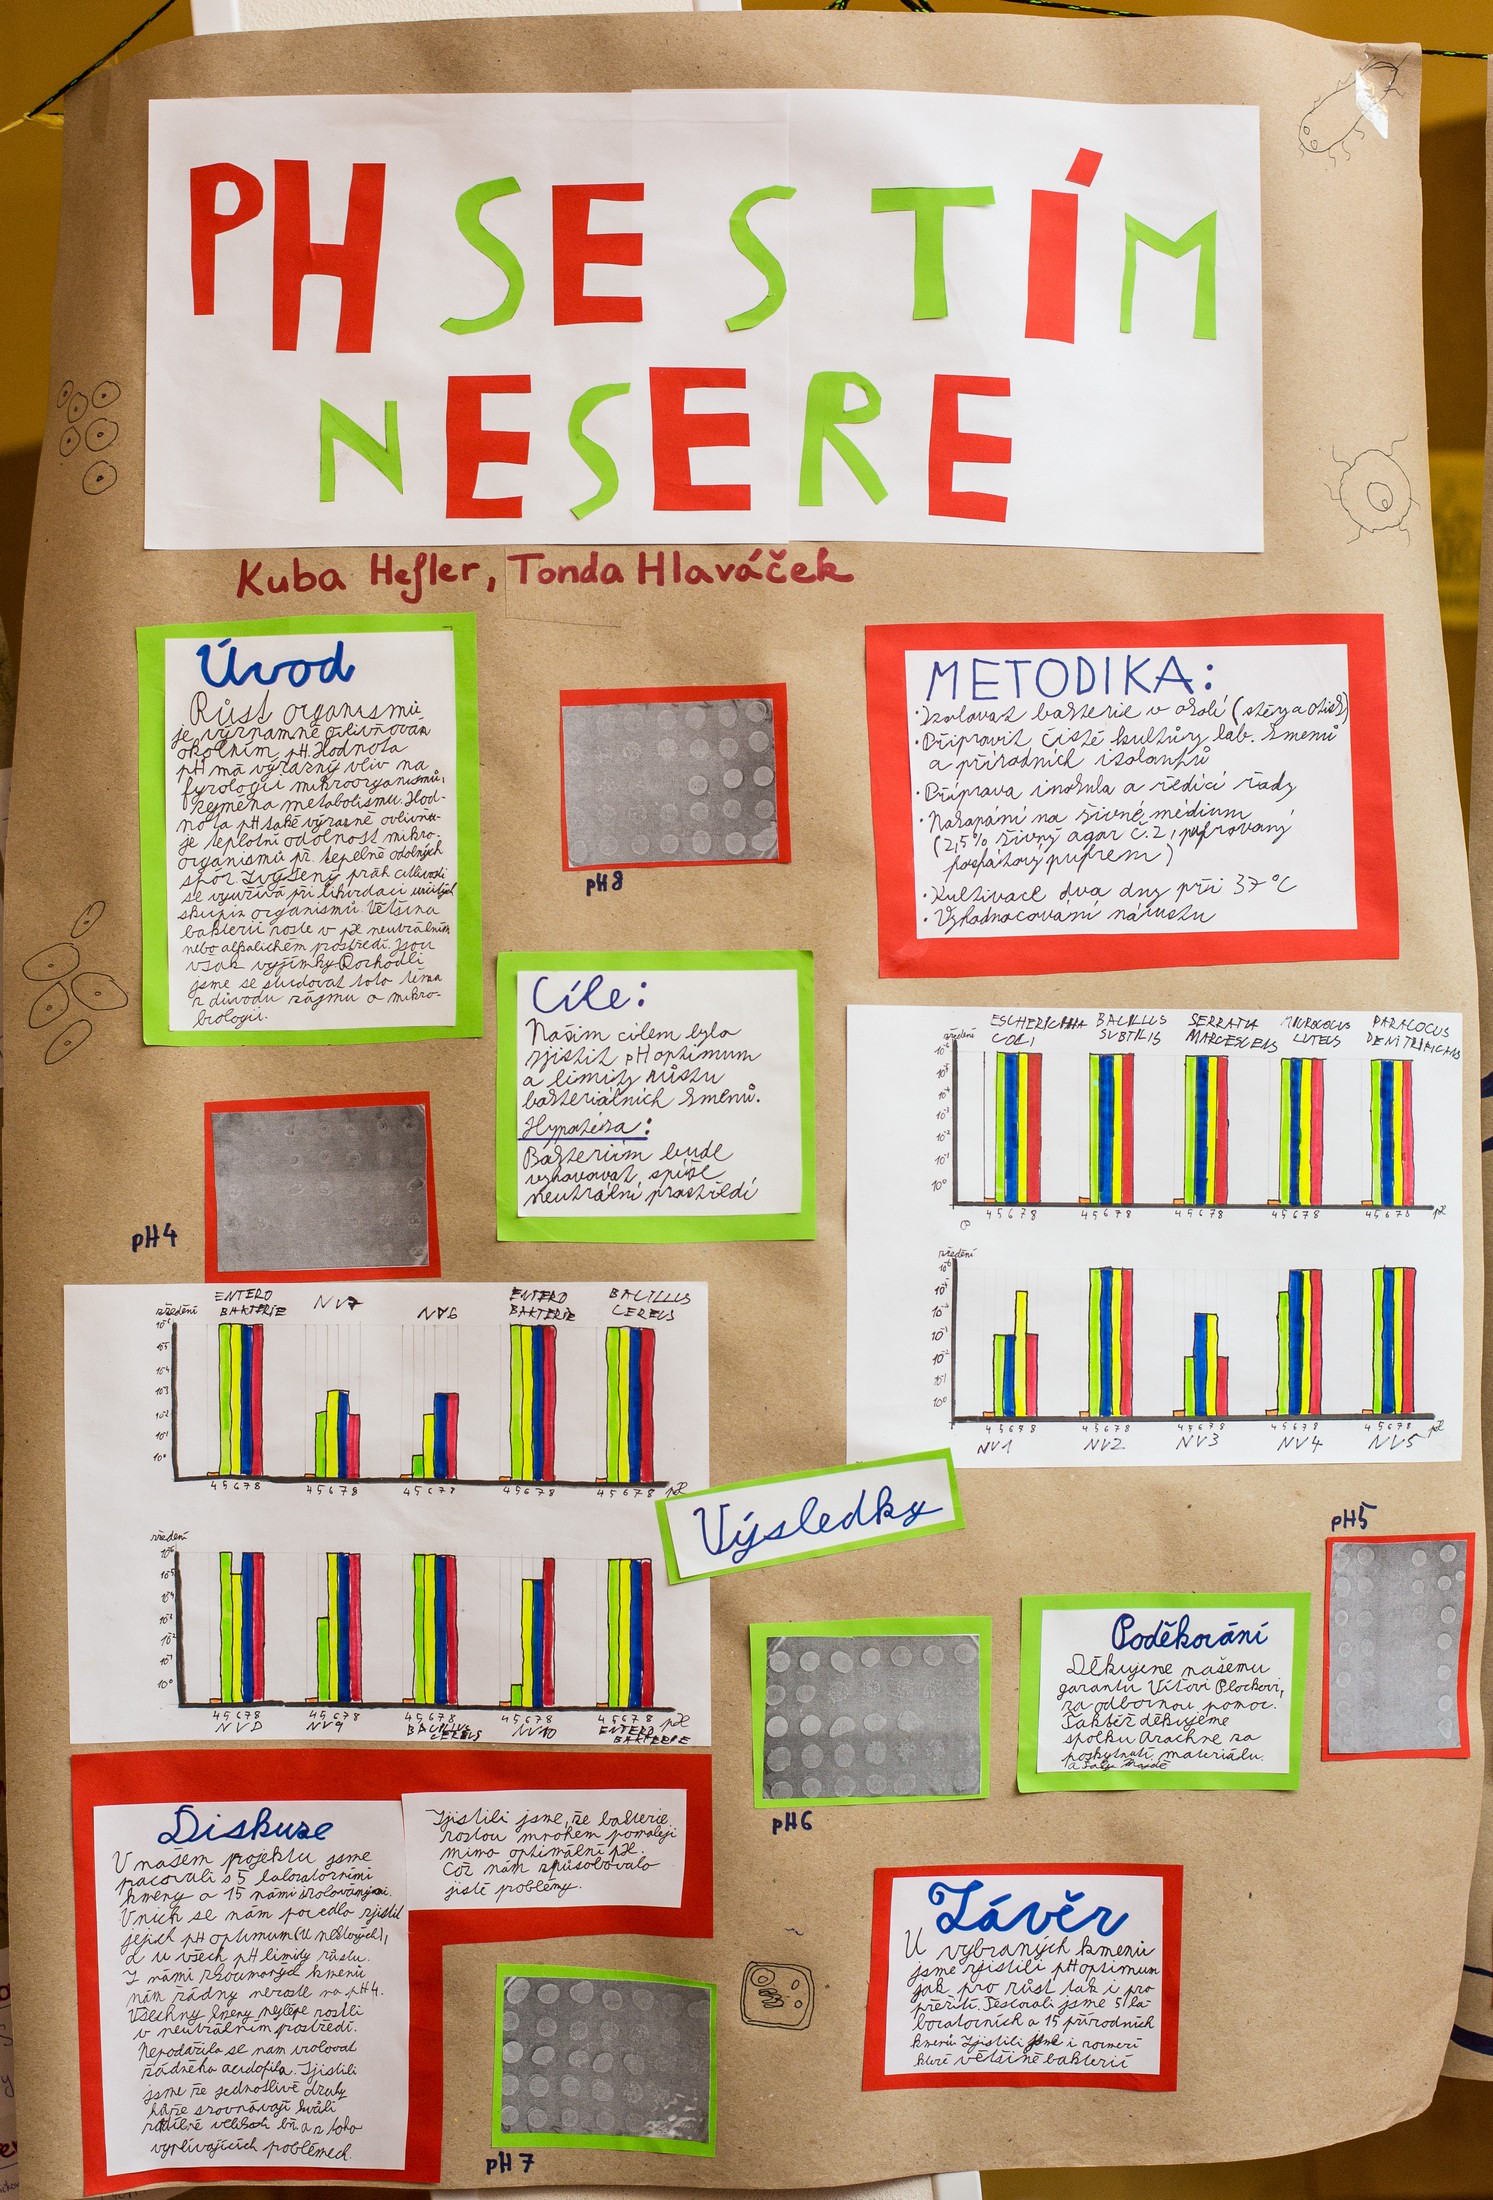 PH SE S TÍM
NESERE
Kuba Hefler, Tonda Hlaváček
Úvod
Růst organismů
je významně ovlivňován
okolním pH. Hodnota
pH má výrazný vliv na
fyziologii mikroorganismů,
zejména metabolismu. Hod-
nota pH také výrazně ovlivňu-
je teplotní odolnost mikro-
organismů př. tepelně odolných
spór. Zvýšený práh citlivosti
se využívá při likvidaci určitých
skupin organismů. Většina
bakterií roste v pH neutrálním
nebo alkalickém prostředí. Jsou
však výjimky. Rozhodli
jsme se studovat toto téma
z důvodu zájmu o mikro-
biologii.
pH8
METODIKA:
· Izolovat bakterie v okolí (stěry a otisk)
· Připravit čisté kultury lab. kmenů
a přírodních izolantů
· Příprava inokula a ředící řady
· Nakapání na živné médium
(2,5% živný agar č.2, pufrovaný
fosfátovým pufrem)
· Kultivace dva dny při 37°C
· Vyhodnocování nárustu
Cíle:
Naším cílem bylo
zjistit pH optimum
a limity růstu
bakteriálních kmenů.
Hypotéza:
Bakteriím bude
vyhovovat spíše
neutrální prostředí
pH4
ESCHERICHIA COLI
BACILLUS SUBTILIS
SERRATIA MARCESCENS
MICROCOCUS LUTEUS
PARACOCUS DENITRIFICANS
zředění
4 5 6 7 8 4 5 6 7 8 4 5 6 7 8 4 5 6 7 8 4 5 6 7 8 pH
zředění
4 5 6 7 8 4 5 6 7 8 4 5 6 7 8 4 5 6 7 8 4 5 6 7 8 pH
NV1 NV2 NV3 NV4 NV5
ENTERO BAKTERIE
NV7
NV6
ENTERO BAKTERIE
BACILLUS CEREUS
zředění
4 5 6 7 8 4 5 6 7 8 4 5 6 7 8 4 5 6 7 8 4 5 6 7 8 pH
zředění
4 5 6 7 8 4 5 6 7 8 4 5 6 7 8 4 5 6 7 8 4 5 6 7 8 pH
NV9 BACILLUS CEREUS NV10 ENTERO BAKTERIE
Výsledky
pH5
pH6
Poděkování
Děkujeme našemu
garantu Vítovi Plockovi,
za odbornou pomoc.
Taktéž děkujeme
spolku Arachne za
poskytnutí materiálu.
Diskuze
V našem projektu jsme
pracovali s 5 laboratorními
kmeny a 15 námi izolovanými.
U nich se nám povedlo zjistit
jejich pH optimum (U některých),
a u všech pH limity růstu.
Z námi zkoumaných kmenů
nám žádný nerostl na pH4.
Všechny kmeny nejlépe rostli
v neutrálním prostředí.
Nepodařilo se nám izolovat
žádného acidofila. Zjistili
jsme že jednotlivé druhy
hůře srovnávají kvůli
různé velikosti a z toho
vyplívajících problémech.
Zjistili jsme, že bakterie
rostou mnohem pomaleji
mimo optimální pH.
Což nám způsobovalo
jisté problémy.
pH7
Závěr
U vybraných kmenů
jsme zjistili pH optimum
jak pro růst tak i pro
přežití. Testovali jsme 5 la-
boratorních a 15 přírodních
kmenů. Zjistili jsme i rozmezí
které většině bakterií